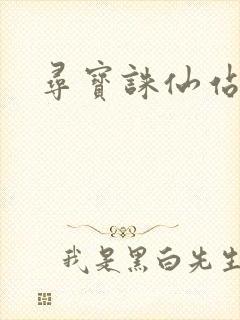 尋寶誅仙佔
我是黑白先生